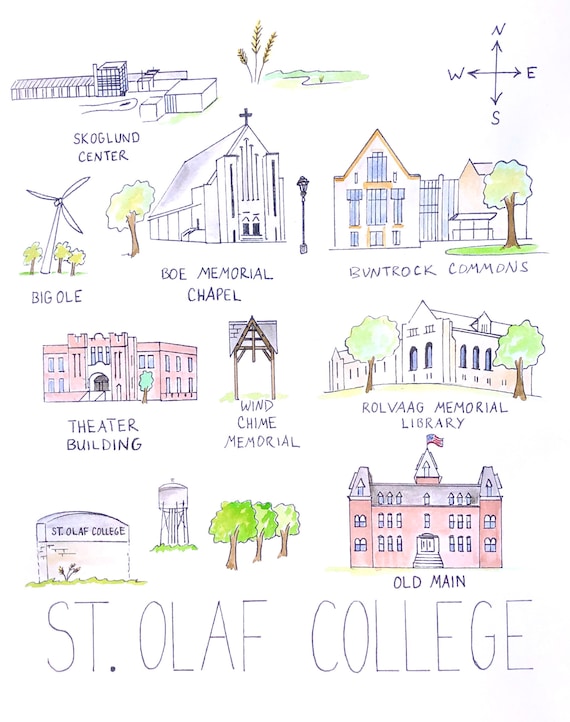 N
W E
S
SKOGLUND
CENTER
BIG OLE
BOE MEMORIAL
CHAPEL
BUNTROCK COMMONS
THEATER
BUILDING
WIND
CHIME
MEMORIAL
ROLVAAG MEMORIAL
LIBRARY
ST. OLAF COLLEGE
OLD MAIN
ST. OLAF COLLEGE